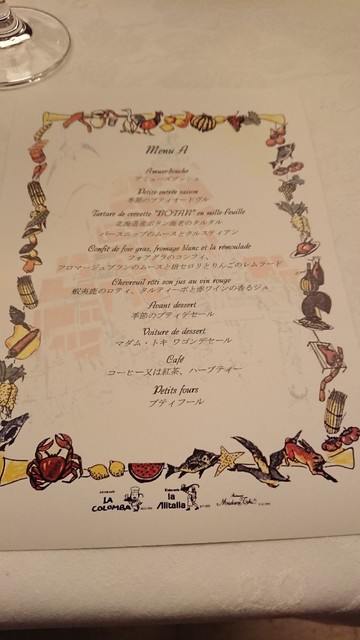 Menu A
Amuse-bouche
アミューズブッシュ
Petite entrée saison
季節のプティオードヴル
Tartare de crevette "BOTAN" en mille-feuille
北海道産ボタン海老のタルタル
パースニップのムースとクルスティアン
Confit de foie gras, fromage blanc et la rémoulade
フォアグラのコンフィ、
フロマージュブランのムースと根セロリとりんごのレムラード
Chevreuil rôti son jus au vin rouge
蝦夷鹿のロティ、タルティーボと赤ワインの香るジュ
Avant dessert
季節のプティデセール
Voiture de dessert
マダム・トキ ワゴンデセール
Café
コーヒー又は紅茶、ハーブティー
Petits fours
プティフール
LA COLOMBA
la Alitalia
Madame Toki